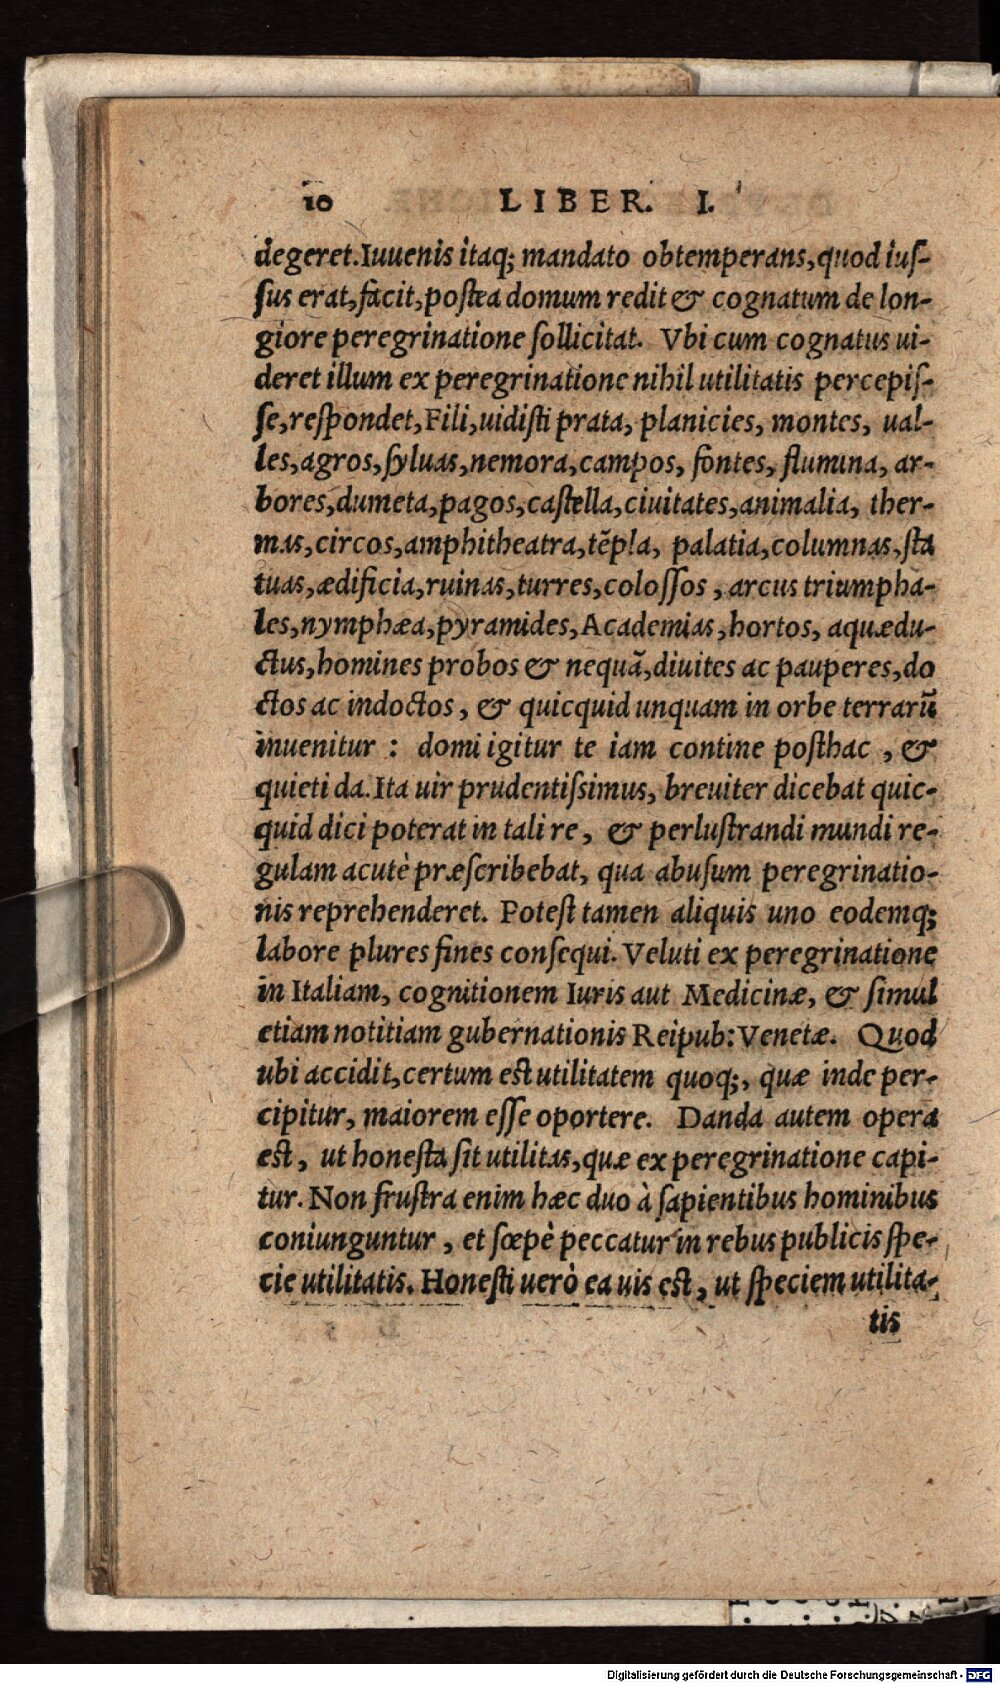 10 LIBER. I.
degeret. Iuuenis itaq; mandato obtemperans, quod iuſ-
ſus erat, facit, poſtea domum redit & cognatum de lon-
giore peregrinatione ſollicitat. Vbi cum cognatus ui-
deret illum ex peregrinatione nihil utilitatis percepiſ-
ſe, reſpondet, Fili, uidiſti prata, planicies, montes, ual-
les, agros, ſyluas, nemora, campos, fontes, flumina, ar-
bores, dumeta, pagos, caſtella, ciuitates, animalia, ther-
mas, circos, amphitheatra, tẽpla, palatia, columnas, ſta
tuas, ædificia, ruinas, turres, coloſſos, arcus triumpha-
les, nymphæa, pyramides, Academias, hortos, aquædu-
ctus, homines probos & nequã, diuites ac pauperes, do
ctos ac indoctos, & quicquid unquam in orbe terrarũ
inuenitur : domi igitur te iam contine poſthac, &
quieti da. Ita uir prudentiſsimus, breuiter dicebat quic-
quid dici poterat in tali re, & perluſtrandi mundi re-
gulam acutè præſcribebat, qua abuſum peregrinatio-
nis reprehenderet. Poteſt tamen aliquis uno eodemq;
labore plures fines conſequi. Veluti ex peregrinatione
in Italiam, cognitionem Iuris aut Medicinæ, & ſimul
etiam notitiam gubernationis Reipub: Venetæ. Quod
ubi accidit, certum est utilitatem quoq;, quæ inde per-
cipitur, maiorem eſſe oportere. Danda autem opera
est, ut honeſta ſit utilitas, quæ ex peregrinatione capi-
tur. Non fruſtra enim hæc duo à ſapientibus hominibus
coniunguntur, et ſœpè peccatur in rebus publicis ſpe-
cie utilitatis. Honeſti uerò ea uis est, ut ſpeciem utilita-
tis
Digitalisierung gefördert durch die Deutsche Forschungsgemeinschaft - DFG